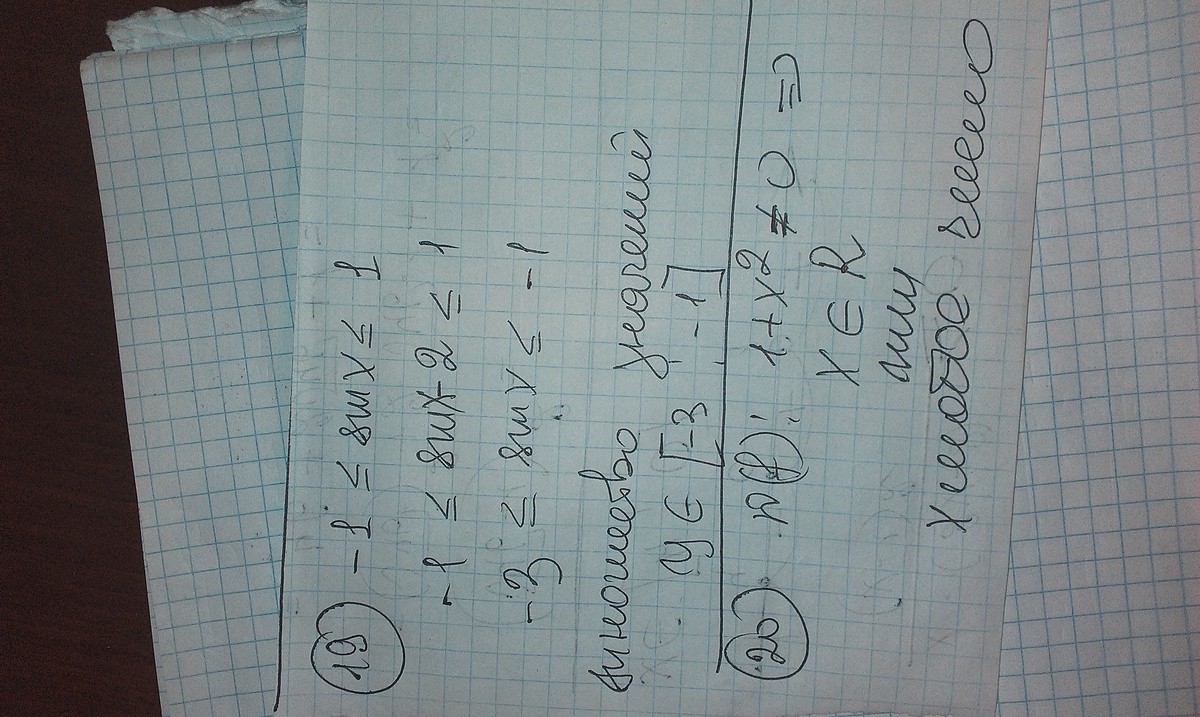 19 -1 ≤ sinx ≤ 1
-1 ≤ sinx-2 ≤ 1
-3 ≤ sinx ≤ -1
множество значений
y ∈ [-3; -1]
20 D(f): 1+x² ≠ 0 ⇒
x ∈ R
или
x любое число